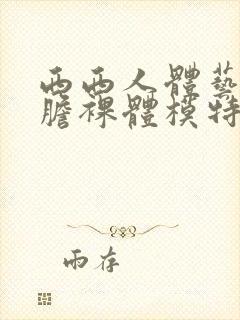 西西人體藝
膽裸體模特
雨存